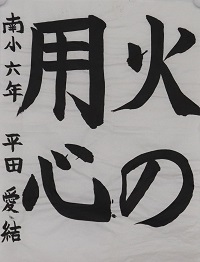 火の
用心
南小六年 平田愛結